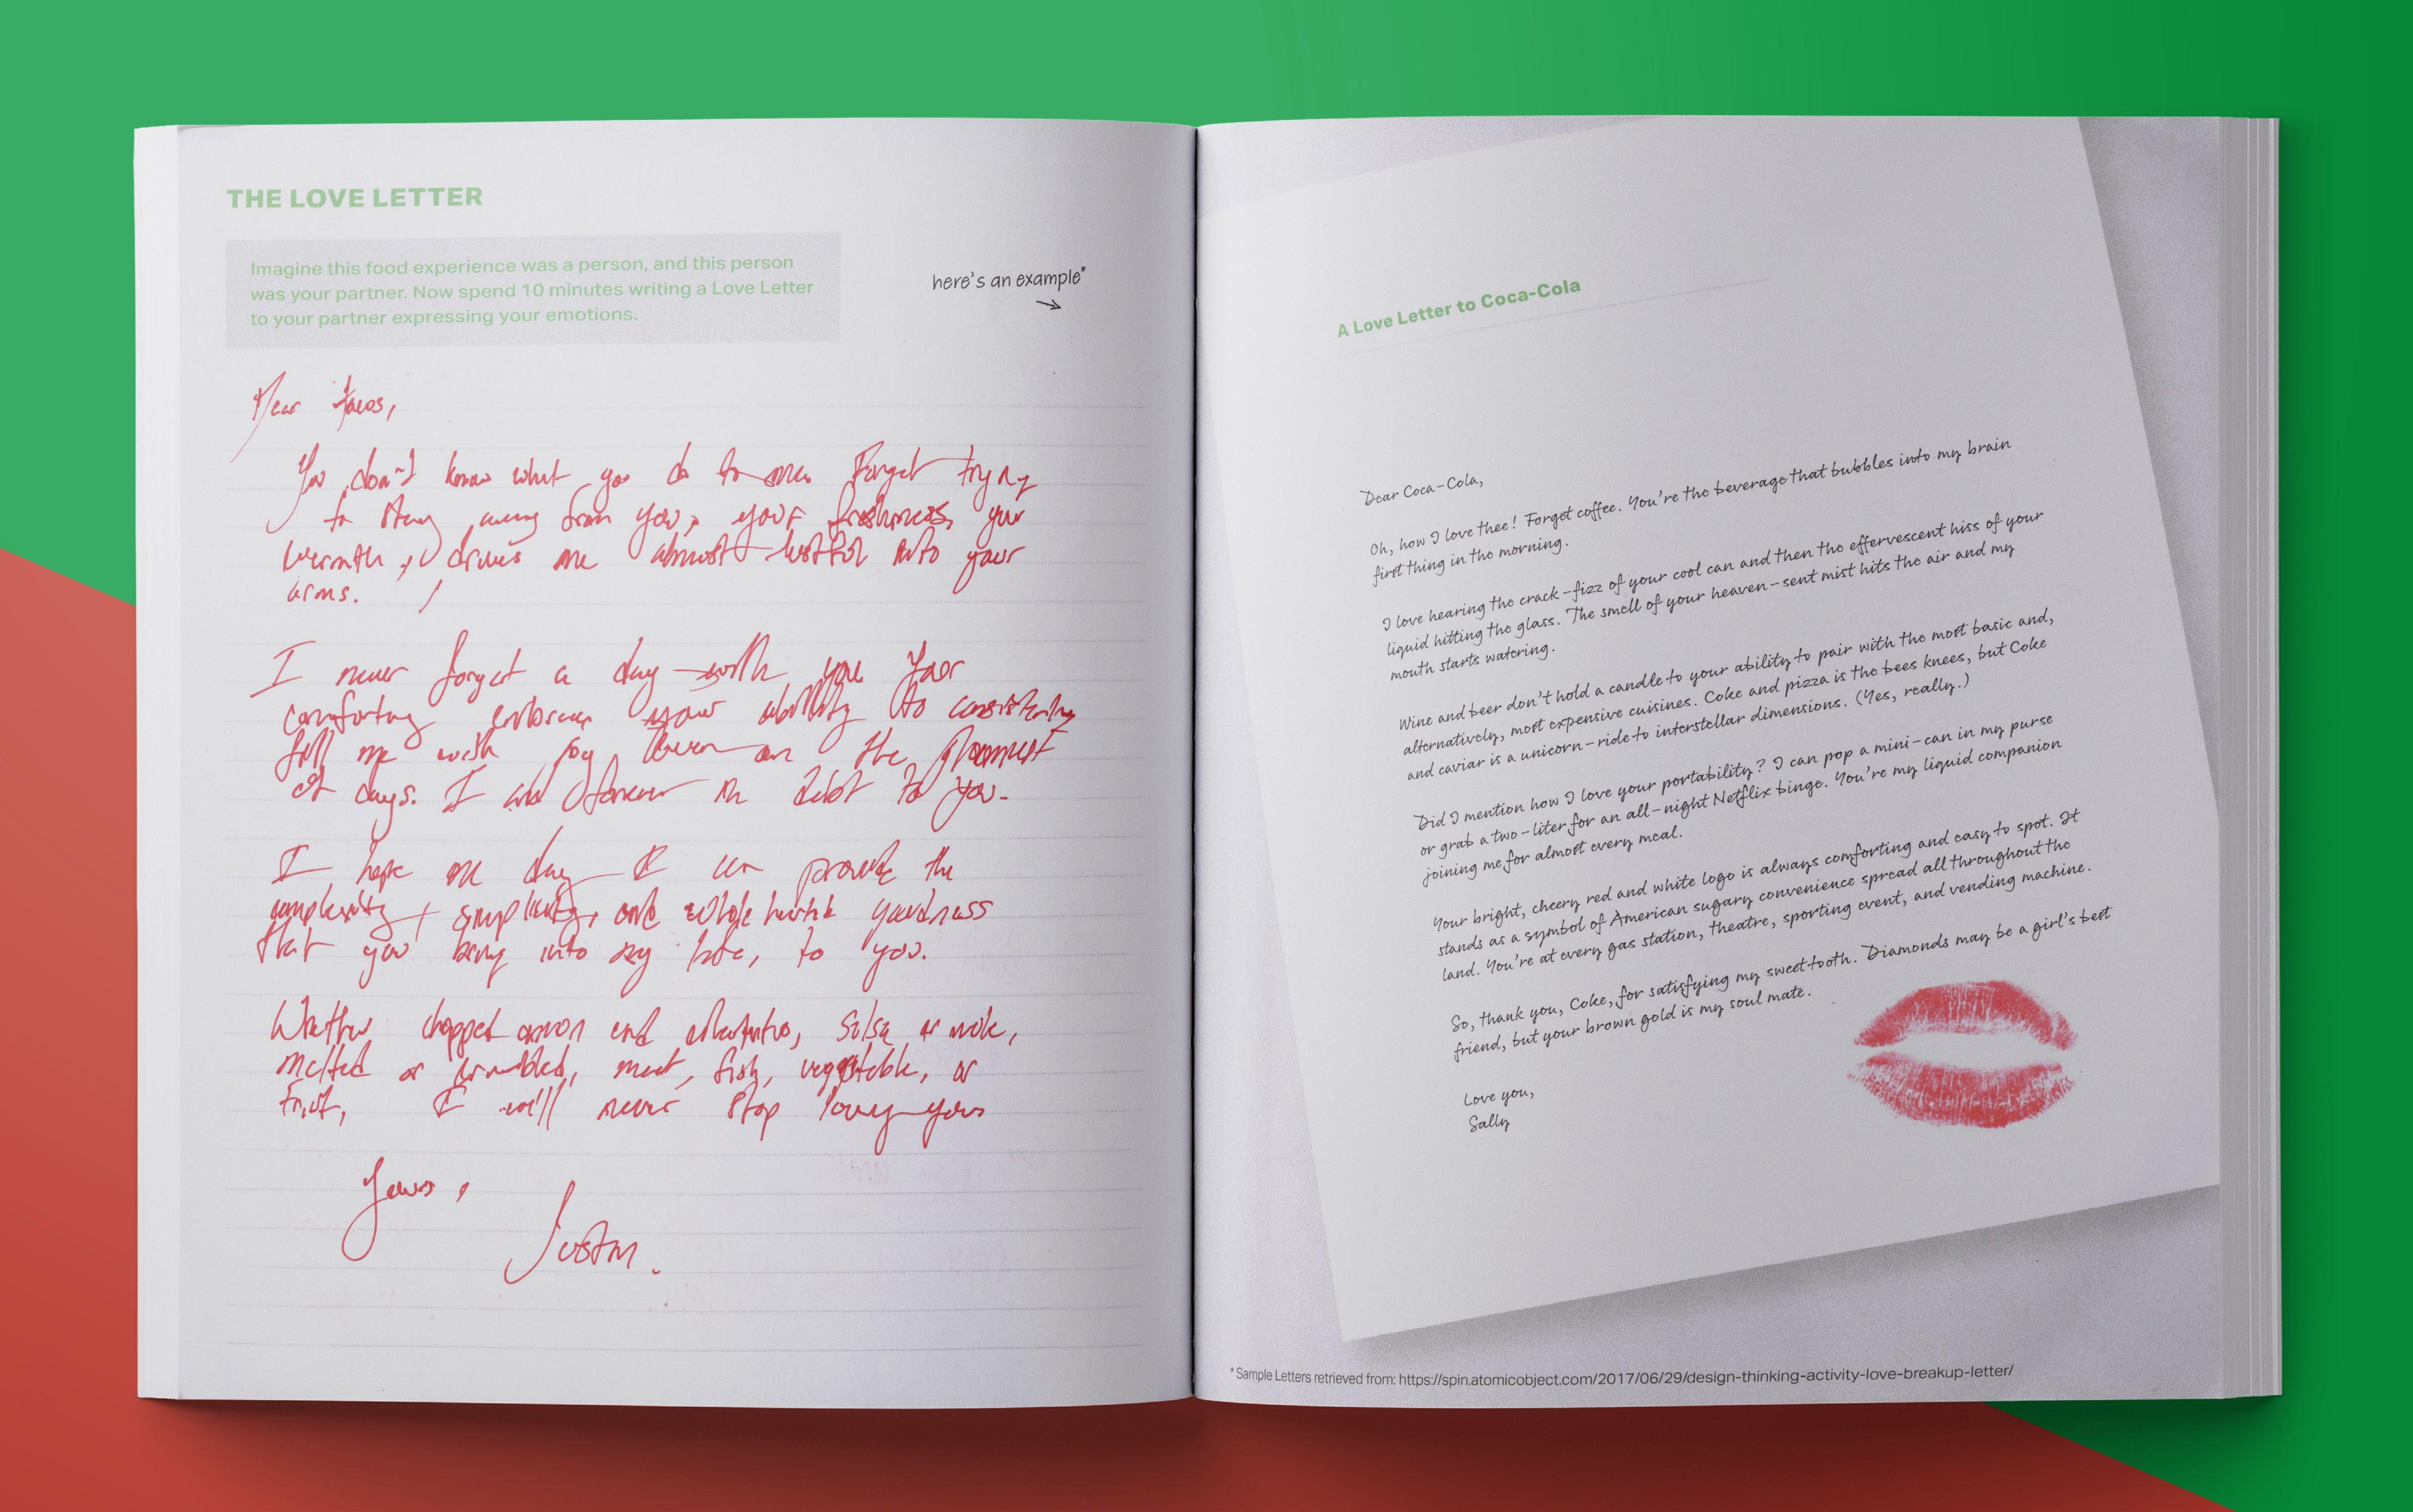 THE LOVE LETTER
Imagine this food experience was a person, and this person
was your partner. Now spend 10 minutes writing a Love Letter
to your partner expressing your emotions.
here's an example*
Dear Tacos,
You don't know what you do to me. Forget trying
to stay away from you, your freshness, your
warmth, drives me almost lustful into your
arms.
I never forget a day with you. Your
comforting embrace, your ability to consistently
fill me with joy even on the of days. I am forever in debt to you.
I hope one day I can provide the
complexity + simplicity, and whole hearted goodness
that you bring into my life, to you.
Whether chopped onion and cilantro, salsa or mole,
melted or crumbled, meat, fish, vegetable, or
fruit, I will never stop loving you
Yours,
Justin.
A Love Letter to Coca-Cola
Dear Coca-Cola,
Oh, how I love thee! Forget coffee. You're the beverage that bubbles into my brain
first thing in the morning.
I love hearing the crack-fizz of your cool can and then the effervescent hiss of your
liquid hitting the glass. The smell of your heaven-sent mist hits the air and my
mouth starts watering.
Wine and beer don't hold a candle to your ability to pair with the most basic and,
alternatively, most expensive cuisines. Coke and pizza is the bees knees, but Coke
and caviar is a unicorn-ride to interstellar dimensions. (Yes, really.)
Did I mention how I love your portability? I can pop a mini-can in my purse
or grab a two-liter for an all-night Netflix binge. You're my liquid companion
joining me for almost every meal.
Your bright, cheery red and white logo is always comforting and easy to spot. It
stands as a symbol of American sugary convenience spread all throughout the
land. You're at every gas station, theatre, sporting event, and vending machine.
So, thank you, Coke, for satisfying my sweet tooth. Diamonds may be a girl's best
friend, but your brown gold is my soul mate.
Love you,
Sally
* Sample Letters retrieved from: https://spin.atomicobject.com/2017/06/29/design-thinking-activity-love-breakup-letter/